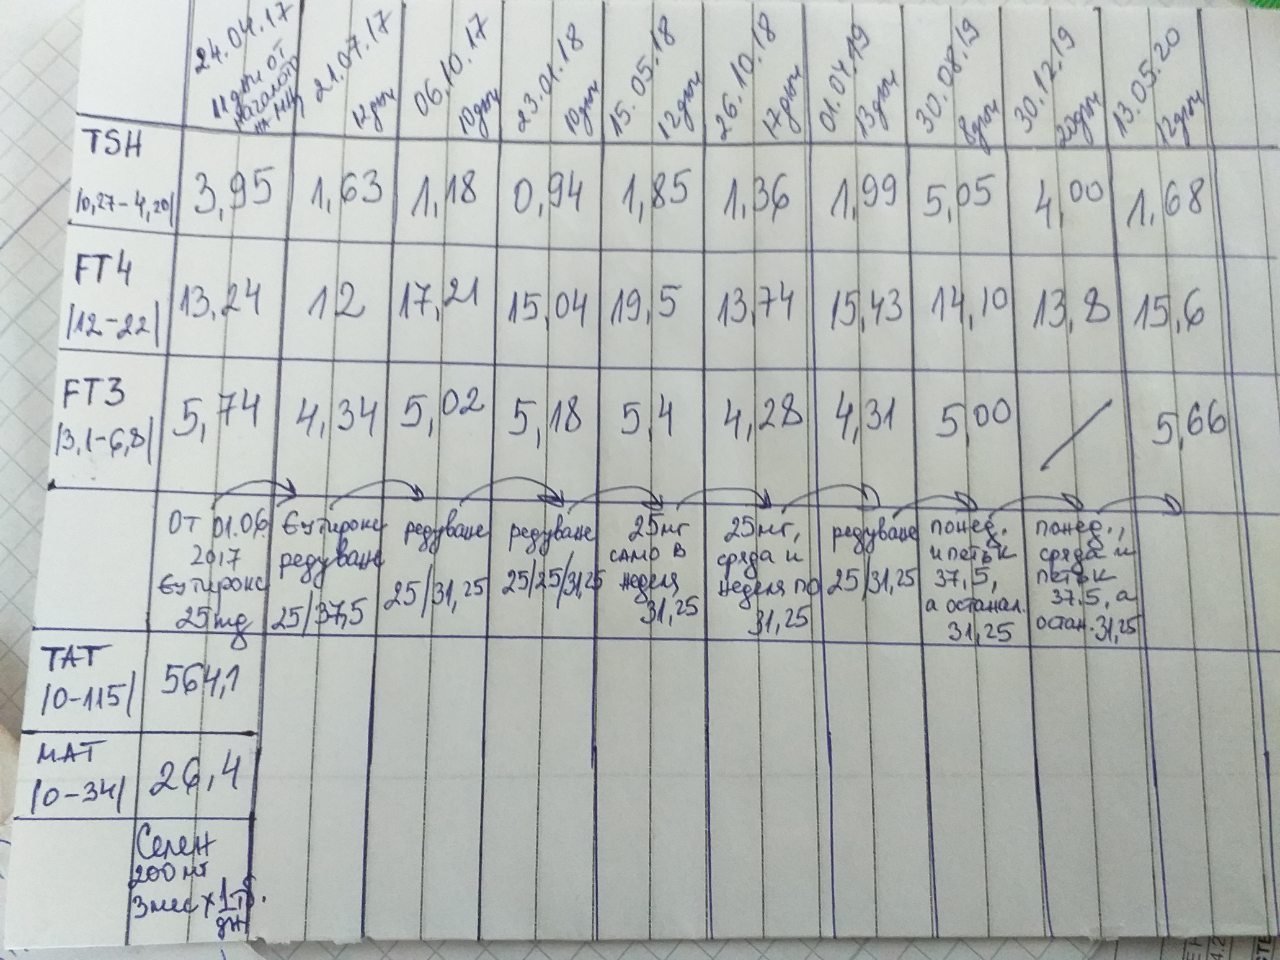 24.04.17
11 дни от
началото
на МЦ
21.07.17
12 дни
06.10.17
10 дни
23.01.18
10 дни
15.05.18
12 дни
26.10.18
17 дни
01.04.19
13 дни
30.08.19
8 дни
30.12.19
20 дни
13.05.20
12 дни
TSH
/0,27-4,20/
3,95 1,63 1,18 0,94 1,85 1,36 1,99 5,05 4,00 1,68
FT4
/12-22/
13,24 12 17,21 15,04 19,5 13,74 15,43 14,10 13,8 15,6
FT3
/3,1-6,8/
5,74 4,34 5,02 5,18 5,4 4,28 4,31 5,00 / 5,66
От 01.06.
2017
Еутирокс
25mg
Еутирокс
редуване
25/37,5
редуване
25/31,25
редуване
25/25/31,25
25мг
само в
неделя
31,25
25мг,
сряда и
неделя по
31,25
редуване
25/31,25
понед.
и петък
37,5,
а останал.
31,25
понед.,
сряда и
петък
37,5, а
остан. 31,25
ТАТ
/0-115/
564,1
МАТ
/0-34/
26,4
Селен
200 мг
3 мес х 1 тб.
дн